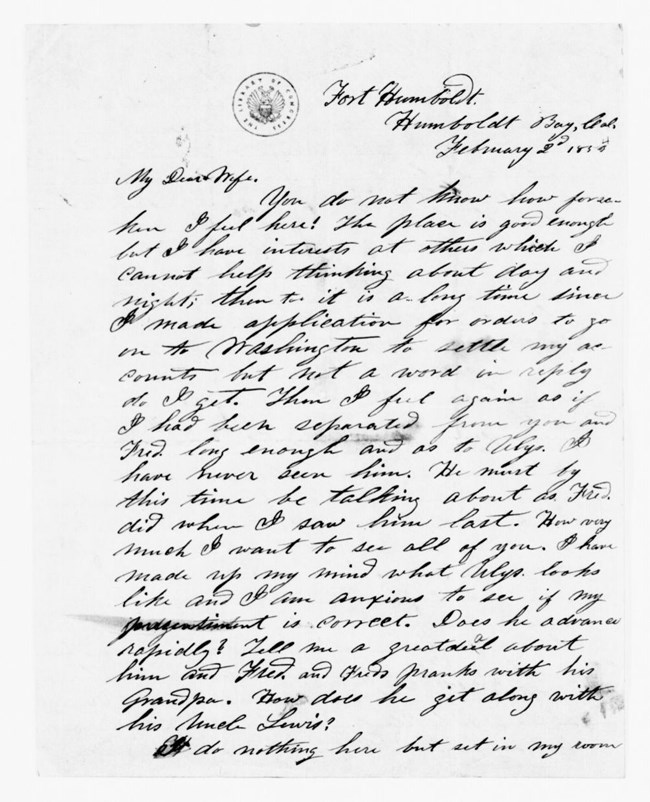 THE LIBRARY OF CONGRESS
Fort Humboldt.
Humboldt Bay, Cal.
February 2d 1854
My Dear Wife.
You do not know how forsa-
ken I feel here! The place is good enough
but I have interests at others which I
cannot help thinking about day and
night; then to it is a long time since
I made application for orders to go
on to Washington to settle my ac-
counts but not a word in reply
do I get. Then I feel again as if
I had been separated from you and
Fred. long enough and as to Ulys. I
have never seen him. He must by
this time be talking about as Fred.
did when I saw him last. How very
much I want to see all of you. I have
made up my mind what Ulys. looks
like and I am anxious to see if my
presentiment is correct. Does he advance
rapidly? Tell me a great deal about
him and Fred. and Freds pranks with his
Grandpa. How does he get along with
his Uncle Lewis?
I do nothing here but set in my room